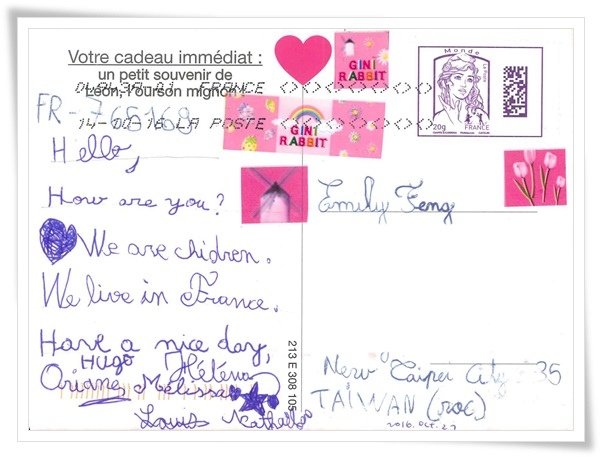 Votre cadeau immédiat :
un petit souvenir de
Léon, l'ourson mignon !
FRANCE
14-10-16 LA POSTE
FR-766168
Hello,
How are you?
We are chidren.
We live in France.
Have a nice day,
Hugo Héléna
Ariane Melissa
Louis
GINI
RABBIT
GINI
RABBIT
Monde
La Poste
20g
FRANCE
Emily Feng
New Taipei City 235
TAIWAN (ROC)
2016.OCT.27
213 E 308 105